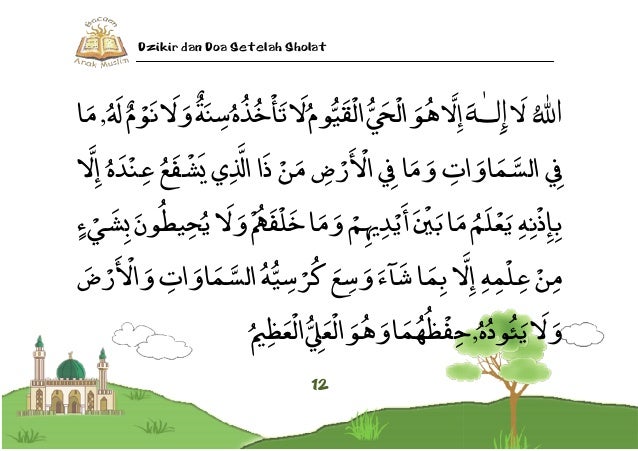 Bacaan
Anak Muslim
Dzikir dan Doa Setelah Sholat
اللهُ لَا إِلَـٰهَ إِلَّا هُوَ الْحَيُّ الْقَيُّومُ لَا تَأْخُذُهُ سِنَةٌ وَلَا نَوْمٌ لَهُ, مَا
فِي السَّمَاوَاتِ وَ مَا فِي الْأَرْضِ مَنْ ذَا الَّذِي يَشْفَعُ عِنْدَهُ إِلَّا
بِإِذْنِهِ يَعْلَمُ مَا بَيْنَ أَيْدِيهِمْ وَ مَا خَلْفَهُمْ وَلَا يُحِيطُونَ بِشَيْءٍ
مِنْ عِلْمِهِ إِلَّا بِمَا شَآءَ وَسِعَ كُرْسِيُّهُ السَّمَاوَاتِ وَ الْأَرْضَ
وَ لَا يَئُودُهُ, حِفْظُهُمَا وَهُوَ الْعَلِيُّ الْعَظِيمُ
12